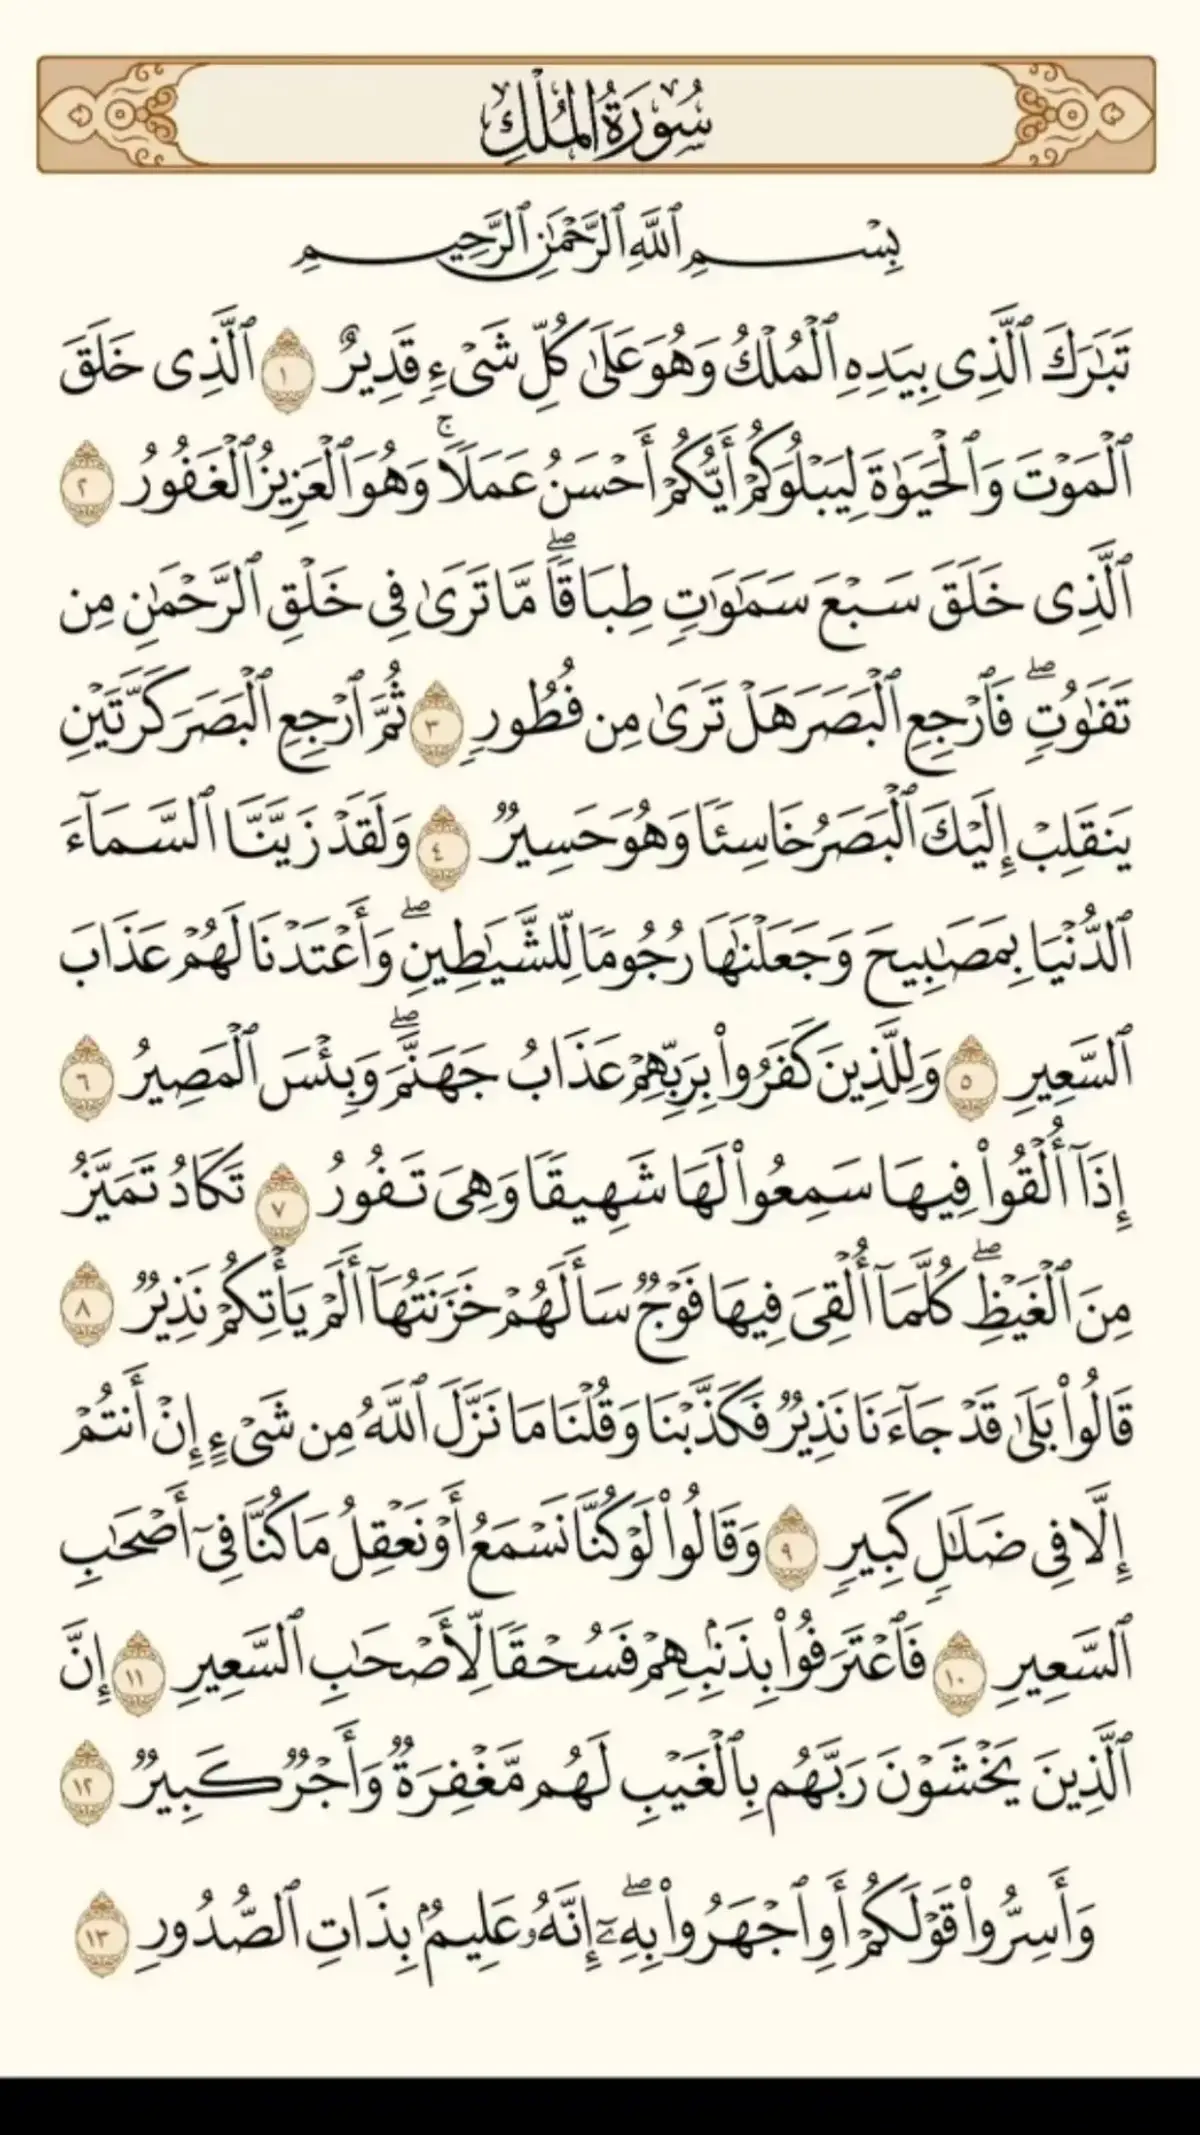 سُورَةُ الْمُلْكِ
بِسْمِ ٱللَّهِ ٱلرَّحْمَٰنِ ٱلرَّحِيمِ
تَبَٰرَكَ ٱلَّذِى بِيَدِهِ ٱلْمُلْكُ وَهُوَ عَلَىٰ كُلِّ شَىْءٍ قَدِيرٌ ١ ٱلَّذِى خَلَقَ
ٱلْمَوْتَ وَٱلْحَيَوٰةَ لِيَبْلُوَكُمْ أَيُّكُمْ أَحْسَنُ عَمَلًا ۚ وَهُوَ ٱلْعَزِيزُ ٱلْغَفُورُ ٢
ٱلَّذِى خَلَقَ سَبْعَ سَمَٰوَٰتٍ طِبَاقًا ۖ مَّا تَرَىٰ فِى خَلْقِ ٱلرَّحْمَٰنِ مِن
تَفَٰوُتٍ ۖ فَٱرْجِعِ ٱلْبَصَرَ هَلْ تَرَىٰ مِن فُطُورٍ ٣ ثُمَّ ٱرْجِعِ ٱلْبَصَرَ كَرَّتَيْنِ
يَنقَلِبْ إِلَيْكَ ٱلْبَصَرُ خَاسِئًا وَهُوَ حَسِيرٌ ٤ وَلَقَدْ زَيَّنَّا ٱلسَّمَآءَ
ٱلدُّنْيَا بِمَصَٰبِيحَ وَجَعَلْنَٰهَا رُجُومًا لِّلشَّيَٰطِينِ ۖ وَأَعْتَدْنَا لَهُمْ عَذَابَ
ٱلسَّعِيرِ ٥ وَلِلَّذِينَ كَفَرُوا۟ بِرَبِّهِمْ عَذَابُ جَهَنَّمَ ۖ وَبِئْسَ ٱلْمَصِيرُ ٦
إِذَآ أُلْقُوا۟ فِيهَا سَمِعُوا۟ لَهَا شَهِيقًا وَهِىَ تَفُورُ ٧ تَكَادُ تَمَيَّزُ
مِنَ ٱلْغَيْظِ ۖ كُلَّمَآ أُلْقِىَ فِيهَا فَوْجٌ سَأَلَهُمْ خَزَنَتُهَآ أَلَمْ يَأْتِكُمْ نَذِيرٌ ٨
قَالُوا۟ بَلَىٰ قَدْ جَآءَنَا نَذِيرٌ فَكَذَّبْنَا وَقُلْنَا مَا نَزَّلَ ٱللَّهُ مِن شَىْءٍ إِنْ أَنتُمْ
إِلَّا فِى ضَلَٰلٍ كَبِيرٍ ٩ وَقَالُوا۟ لَوْ كُنَّا نَسْمَعُ أَوْ نَعْقِلُ مَا كُنَّا فِىٓ أَصْحَٰبِ
ٱلسَّعِيرِ ١٠ فَٱعْتَرَفُوا۟ بِذَنۢبِهِمْ فَسُحْقًا لِّأَصْحَٰبِ ٱلسَّعِيرِ ١١ إِنَّ
ٱلَّذِينَ يَخْشَوْنَ رَبَّهُم بِٱلْغَيْبِ لَهُم مَّغْفِرَةٌ وَأَجْرٌ كَبِيرٌ ١٢
وَأَسِرُّوا۟ قَوْلَكُمْ أَوِ ٱجْهَرُوا۟ بِهِۦٓ ۖ إِنَّهُۥ عَلِيمٌۢ بِذَاتِ ٱلصُّدُورِ ١٣